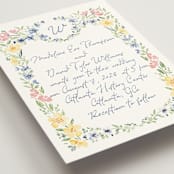 W
Madeline Rae Thompson
and
David Tyler Williams
invite you to their wedding
August 7, 2028 at 5
Atlanta History Center
Atlanta, Ga
Reception to follow